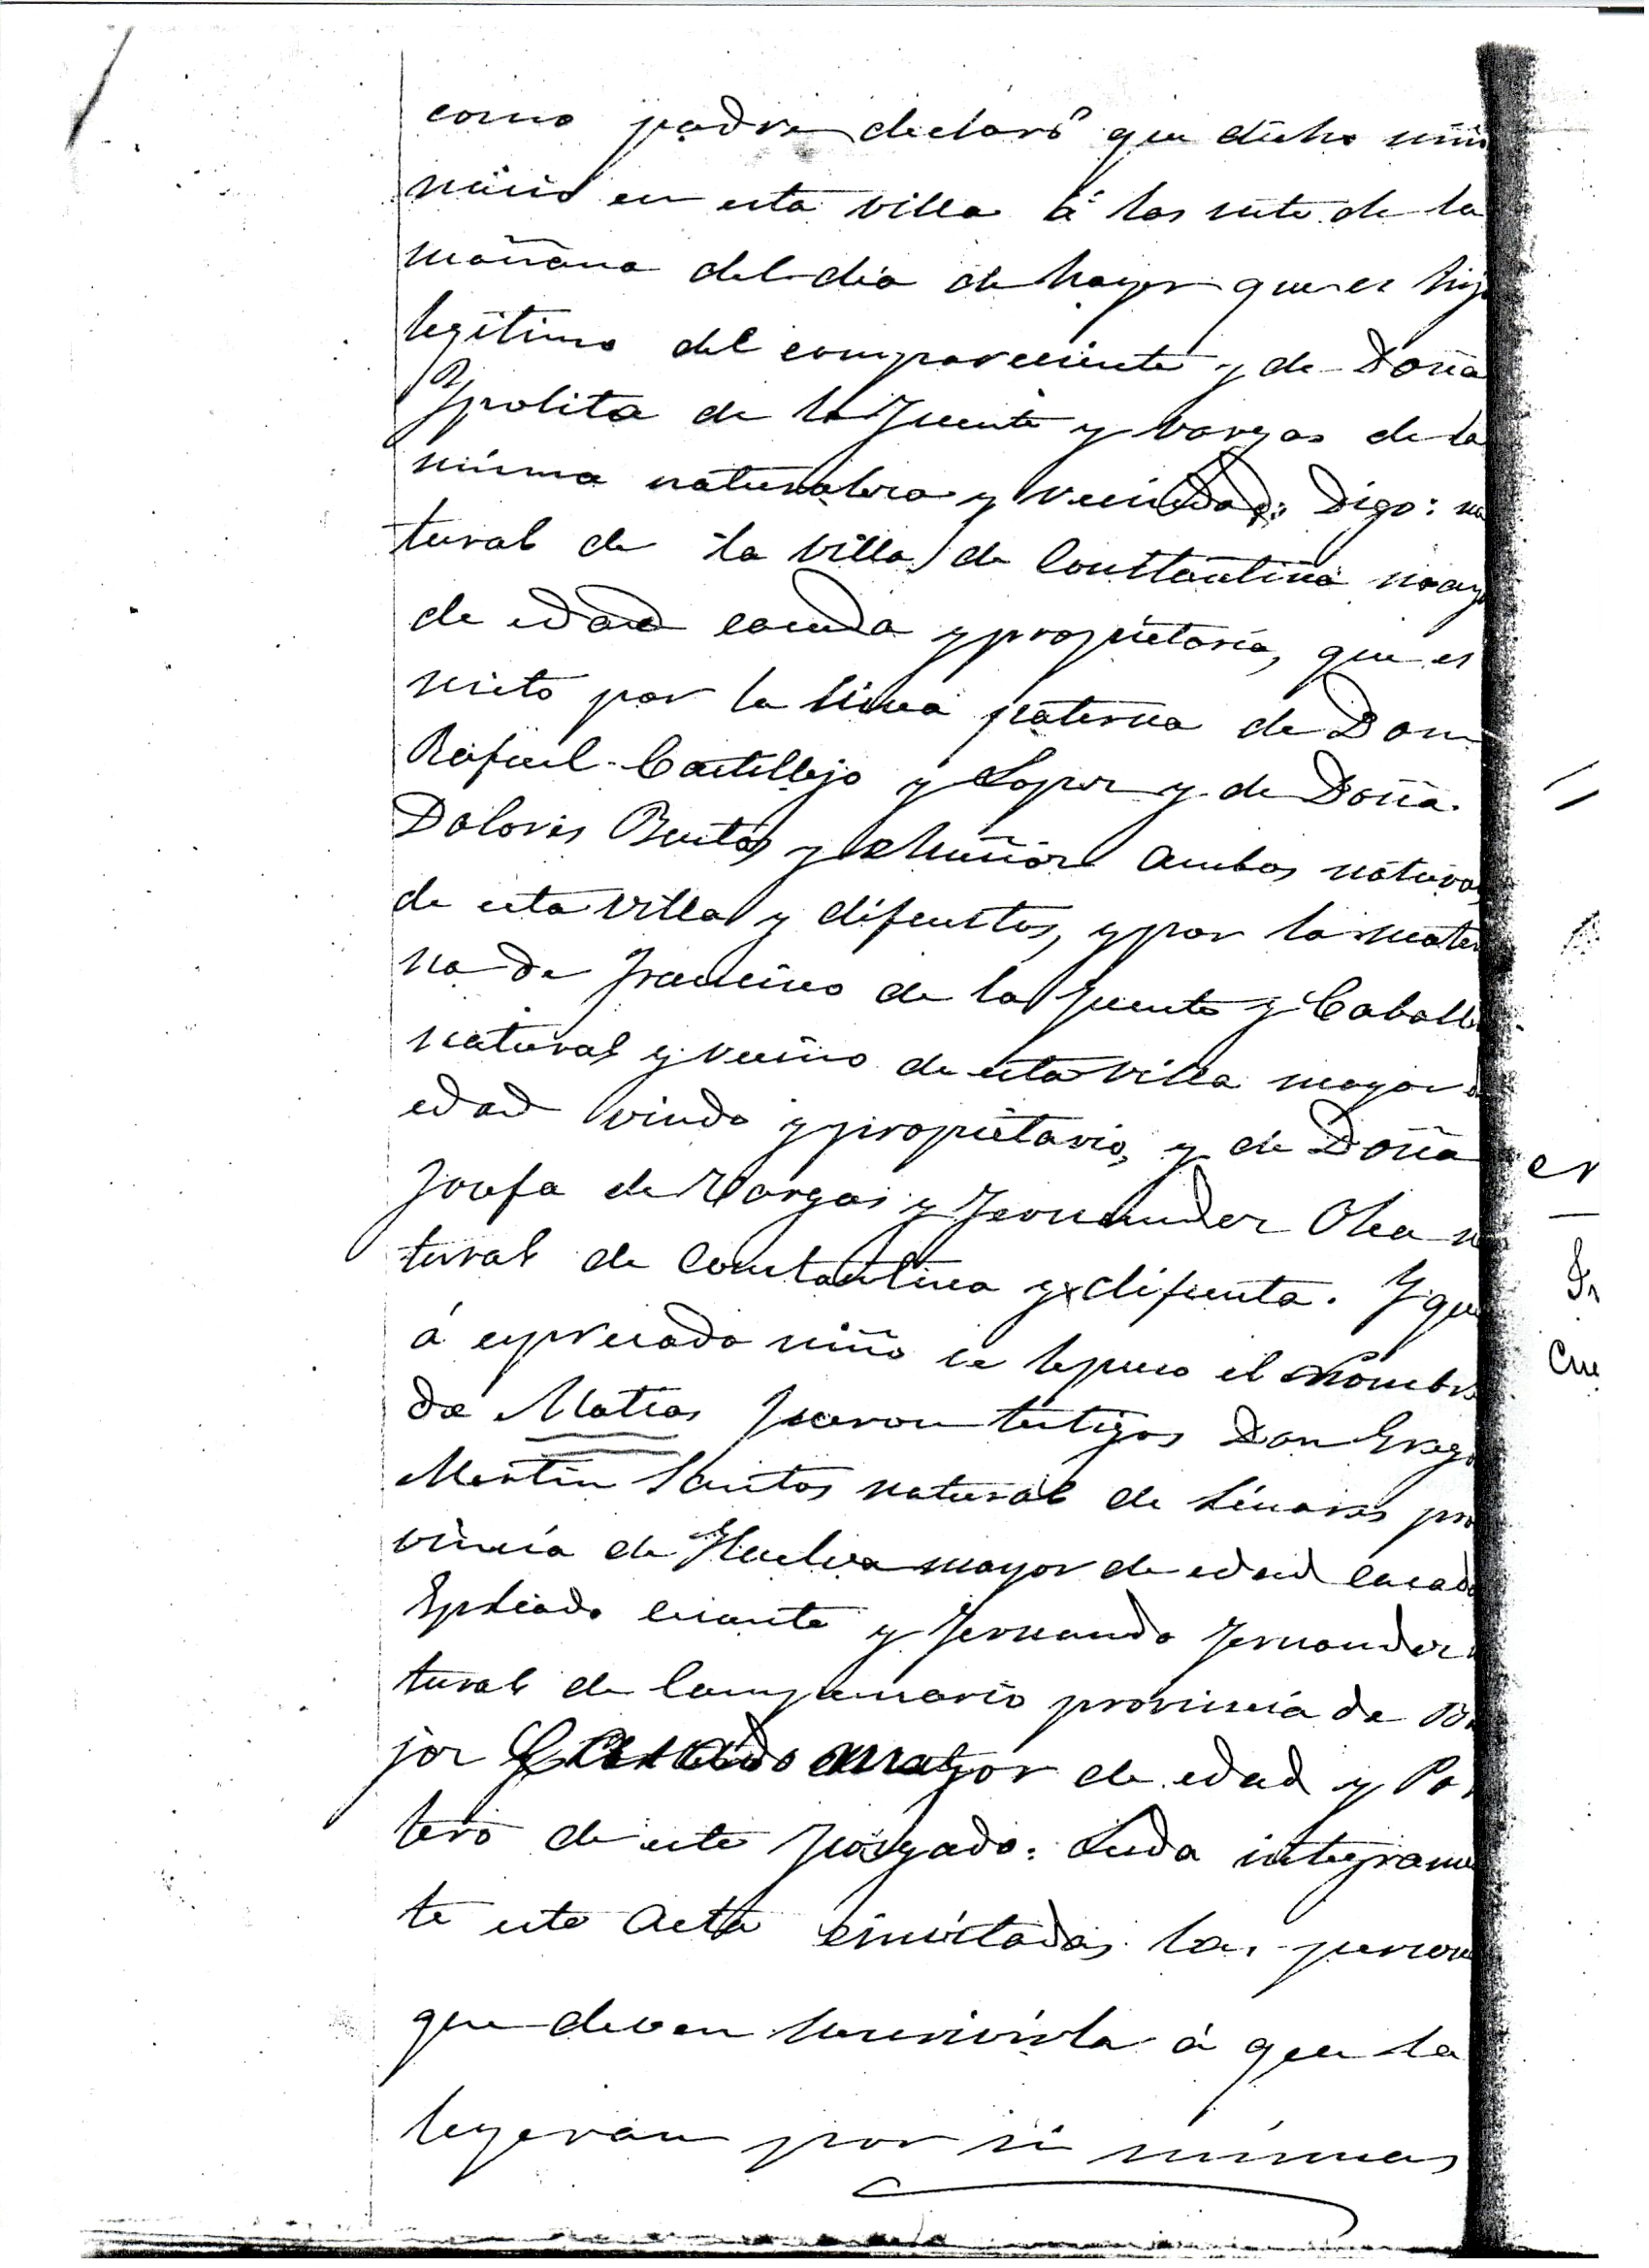 como padre declaró que dicho niño
nació en esta villa á las siete de la
mañana del dia de hoy que es hijo
legitimo del compareciente y de Doña
Ypolita de la Fuente y Vargas de la
misma naturaleza y vecindad: Digo: na
tural de la villa de Constantina mayor
de edad casada y propietaria, que es
nieto por la linea paterna de Don
Rafael Castillejo y Lopez y de Doña
Dolores Benitez y Muñoz ambos natural
de esta Villa y difuntos, y por la mater
na de Francisco de la Fuente y Caballe
natural y vecino de esta Villa mayor d
edad viudo y propietario, y de Doña
Josefa de Vargas y Fernandez Olea na
tural de Constantina y difunta. Y que
á expresado niño se le puso el nombre
de Matias Fueron testigos Don Grego
Martin Santos natural de Linares pro
vincia de Huelva mayor de edad casado
Enpleado cesante y Fernando Fernandez
tural de Campanario provincia de Ba
joz Casado mayor de edad y Por
tero de este Juzgado: Leida integramen
te esta Acta é invitadas las person
que deven suscrivirla á que la
leyeran por si mismas
er
Fr
Cue